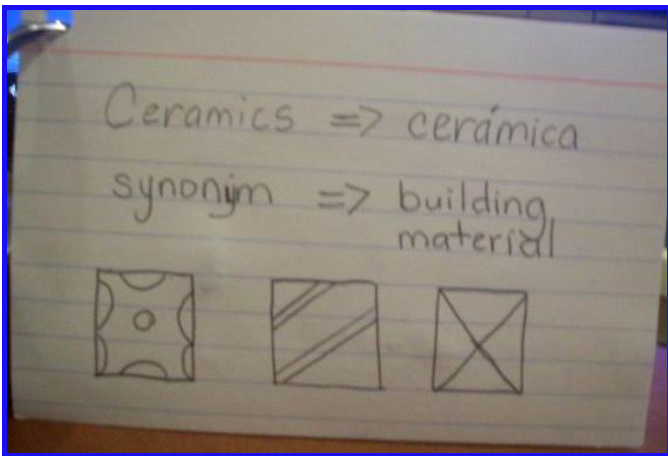 Ceramics => cerámica
synonjm => building
material